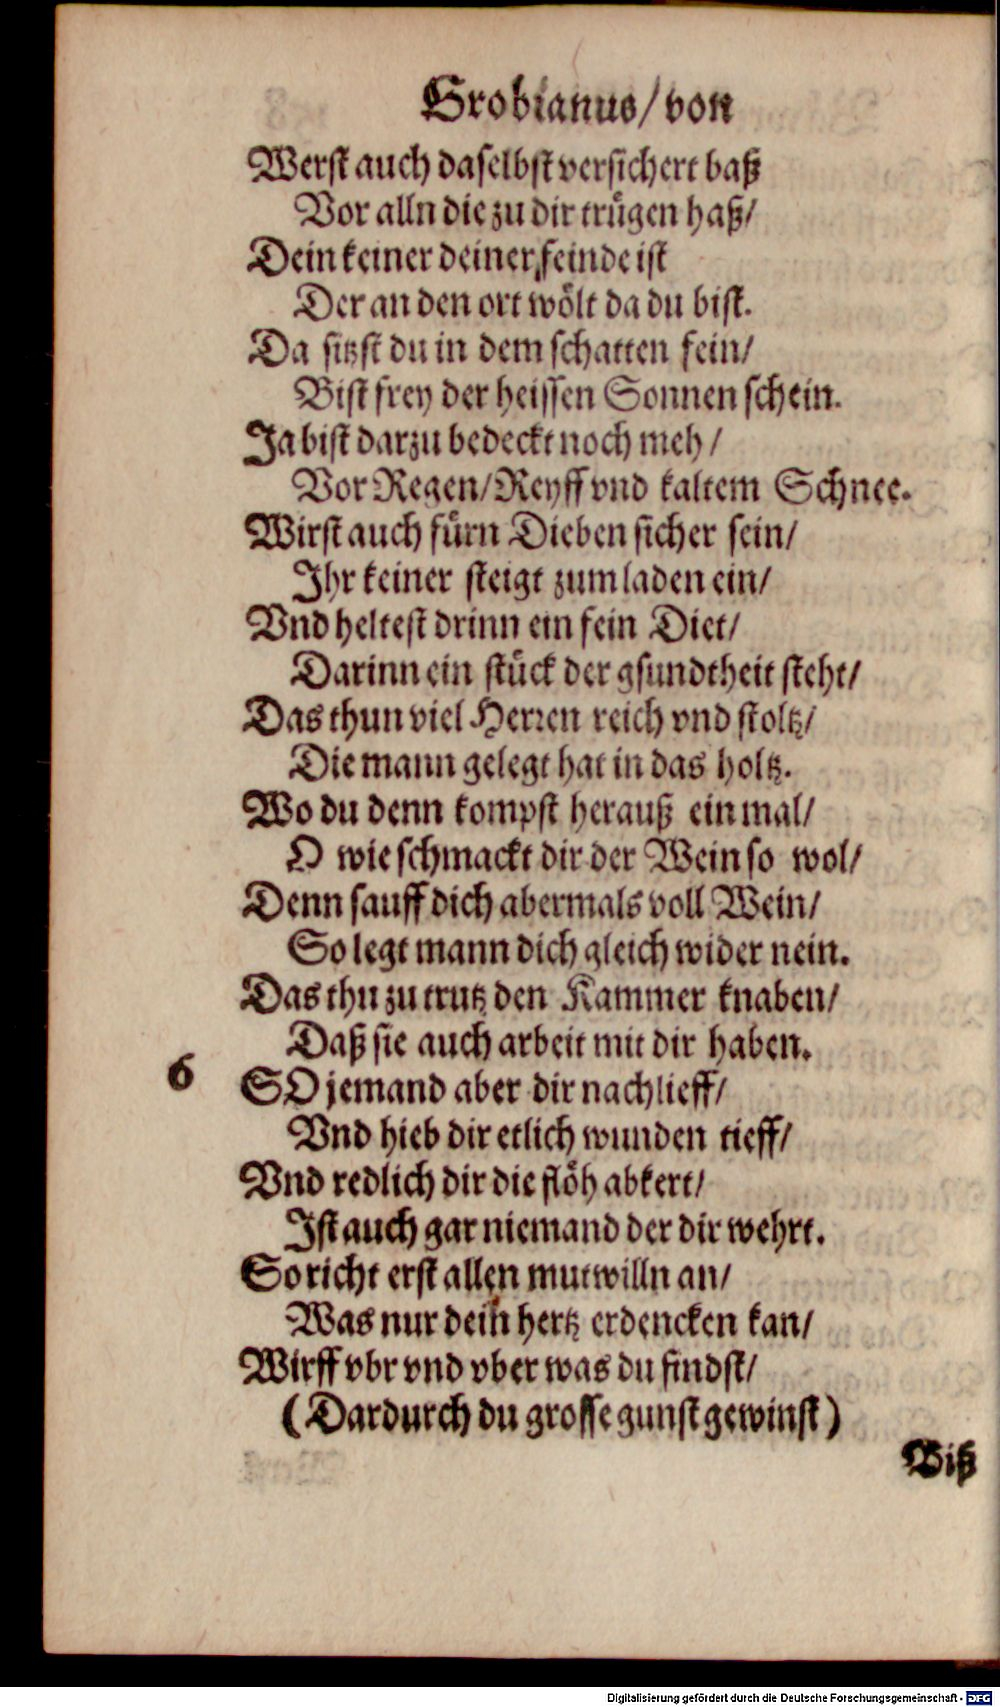 Grobianus/ von
Werst auch daselbst versichert baß
Vor alln die zu dir trügen haß/
Dein keiner deiner feinde ist
Der an den ort wölt da du bist.
Da sitzst du in dem schatten fein/
Bist frey der heissen Sonnen schein.
Ja bist darzu bedeckt noch meh/
Vor Regen/ Reyff vnd kaltem Schnee.
Wirst auch fürn Dieben sicher sein/
Ihr keiner steigt zum laden ein/
Vnd heltest drinn ein fein Diet/
Darinn ein stück der gsundtheit steht/
Das thun viel Herren reich vnd stoltz/
Die mann gelegt hat in das holtz.
Wo du denn kompst herauß ein mal/
O wie schmackt dir der Wein so wol/
Denn sauff dich abermals voll Wein/
So legt mann dich gleich wider nein.
Das thu zu trutz den Kammer knaben/
Daß sie auch arbeit mit dir haben.
6 SO jemand aber dir nachlieff/
Vnd hieb dir etlich wunden tieff/
Vnd redlich dir die flöh abkert/
Ist auch gar niemand der dir wehrt.
So richt erst allen mutwilln an/
Was nur dein hertz erdencken kan/
Wirff vbr vnd vber was du findst/
(Dardurch du grosse gunst gewinst)
Biß
Digitalisierung gefördert durch die Deutsche Forschungsgemeinschaft - DFG